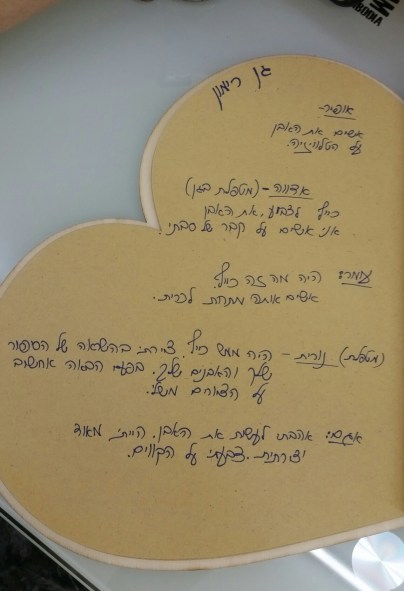 גן רימון
אופיר-
אשים את האבן
על הטלוויזיה.
אדווה - (מטפלת בגן)
כייף לצבוע, את האבן
אני אשים על קבר של סבתי.
עומר: היה מה זה כייף.
אשים אותה מתחת לכרית.
(מטפלת) נורית - היה ממש כייף. ציירתי בהשראה של הסיפור
שלך והאבנים שלך. בפעם הבאה אחשוב
על הציורים משלי.
אגם: אהבתי לעשות את האבן. הייתי מאוד
יצירתית. צבעתי על הקווים.